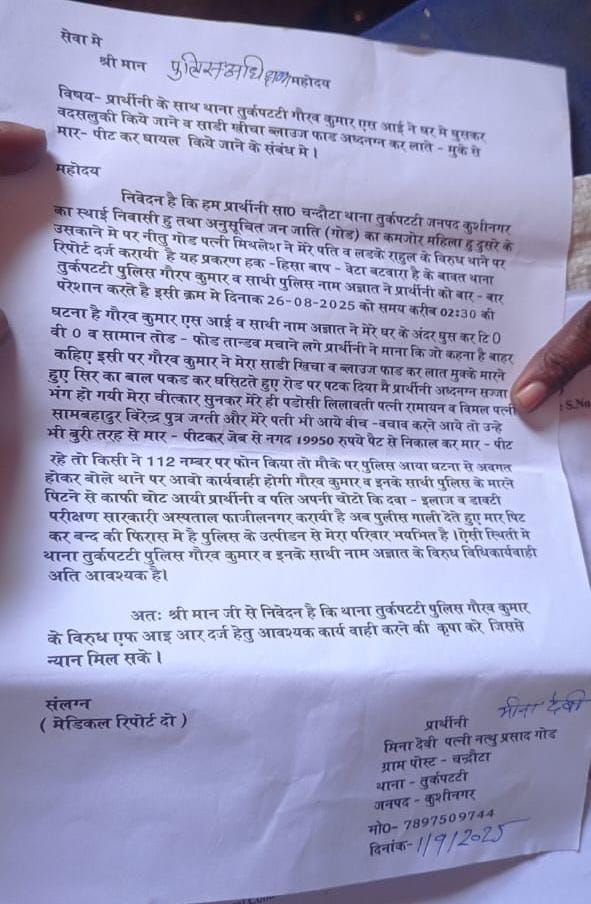 सेवा मे
श्री मान पुलिस अधिक्षक महोदय
विषय- प्रार्थीनी के साथ थाना तुर्कपटटी गौरव कुमार एस आई ने घर मे घुसकर
वदसलुकी किये जाने व साडी खीचा ब्लाउज फाड अध्दनग्न कर लाते - मुके से
मार- पीट कर घायल किये जाने के संबंध मे ।
महोदय
निवेदन है कि हम प्रार्थीनी सा0 चन्दौटा थाना तुर्कपटटी जनपद कुशीनगर
का स्थाई निवासी हु तथा अनुसूचित जन जाति (गोड) का कमजोर महिला हु दुसरे के
उसकाने मे पर नीतु गोड पत्नी मिथलेश ने मेरे पति व लडके राहुल के विरुध थाने पर
रिपोर्ट दर्ज करायी है यह प्रकरण हक - हिसा बाप - वेटा बटवारा है के बावत थाना
तुर्कपटटी पुलिस गौरप कुमार व साथी पुलिस नाम अज्ञात ने प्रार्थीनी को बार - बार
परेशान करते है इसी क्रम मे दिनाक 26-08-2025 को समय करीब 02:30 की
घटना है गौरव कुमार एस आई व साथी नाम अज्ञात ने मेरे घर के अंदर घुस कर टि0
वी 0 व सामान तोड - फोड तान्डव मचाने लगे प्रार्थीनी ने माना कि जो कहना है बाहर
कहिए इसी पर गौरव कुमार ने मेरा साडी खिचा व ब्लाउज फाड कर लात मुक्के मारने
हुए सिर का बाल पकड कर घसिटते हुए रोड पर पटक दिया मै प्रार्थीनी अध्दनग्न सज्जा
भंग हो गयी मेरा चीत्कार सुनकर मेरे ही पडोसी लिलावती पत्नी रामायन व विमल पत्नी
सामबहादुर विरेन्द्र पुत्र जग्ती और मेरे पती भी आये वीच -वचाव करने आये तो उन्हे
भी बुरी तरह से मार - पीटकर जेब से नगद 19950 रुपये पैट से निकाल कर मार - पीट
रहे तो किसी ने 112 नम्बर पर फोन किया तो मौके पर पुलिस आया घटना से अवगत
होकर बोले थाने पर आवो कार्यवाही होगी गौरव कुमार व इनके साथी पुलिस के मारने
पिटने से काफी चोट आयी प्रार्थीनी व पति अपनी चोटो कि दवा - इलाज व डाक्टी
परीक्षण सारकारी अस्पताल फाजीलनगर करायी है अब पुलीस गाली देते हुए मार पिट
कर बन्द की फिरास मे है पुलिस के उत्पीडन से मेरा परिवार भयमित है ।ऐसी स्थिती मे
थाना तुर्कपटटी पुलिस गौरव कुमार व इनके साथी नाम अज्ञात के विरुध विधिकार्यवाही
अति आवश्यक है।
अतः श्री मान जी से निवेदन है कि थाना तुर्कपटटी पुलिस गौरव कुमार
के विरुध एफ आइ आर दर्ज हेतु आवश्यक कार्य वाही करने की कृपा करे जिससे
न्यान मिल सके ।
संलग्न
( मेडिकल रिपोर्ट दो )
मीना देवी
प्रार्थीनी
मिना देवी पत्नी नत्थु प्रसाद गोड
ग्राम पोस्ट - चन्द्रौटा
थाना - तुर्कपटटी
जनपद - कुशीनगर
मो0- 7897509744
दिनांक- 1/9/2025
S.No